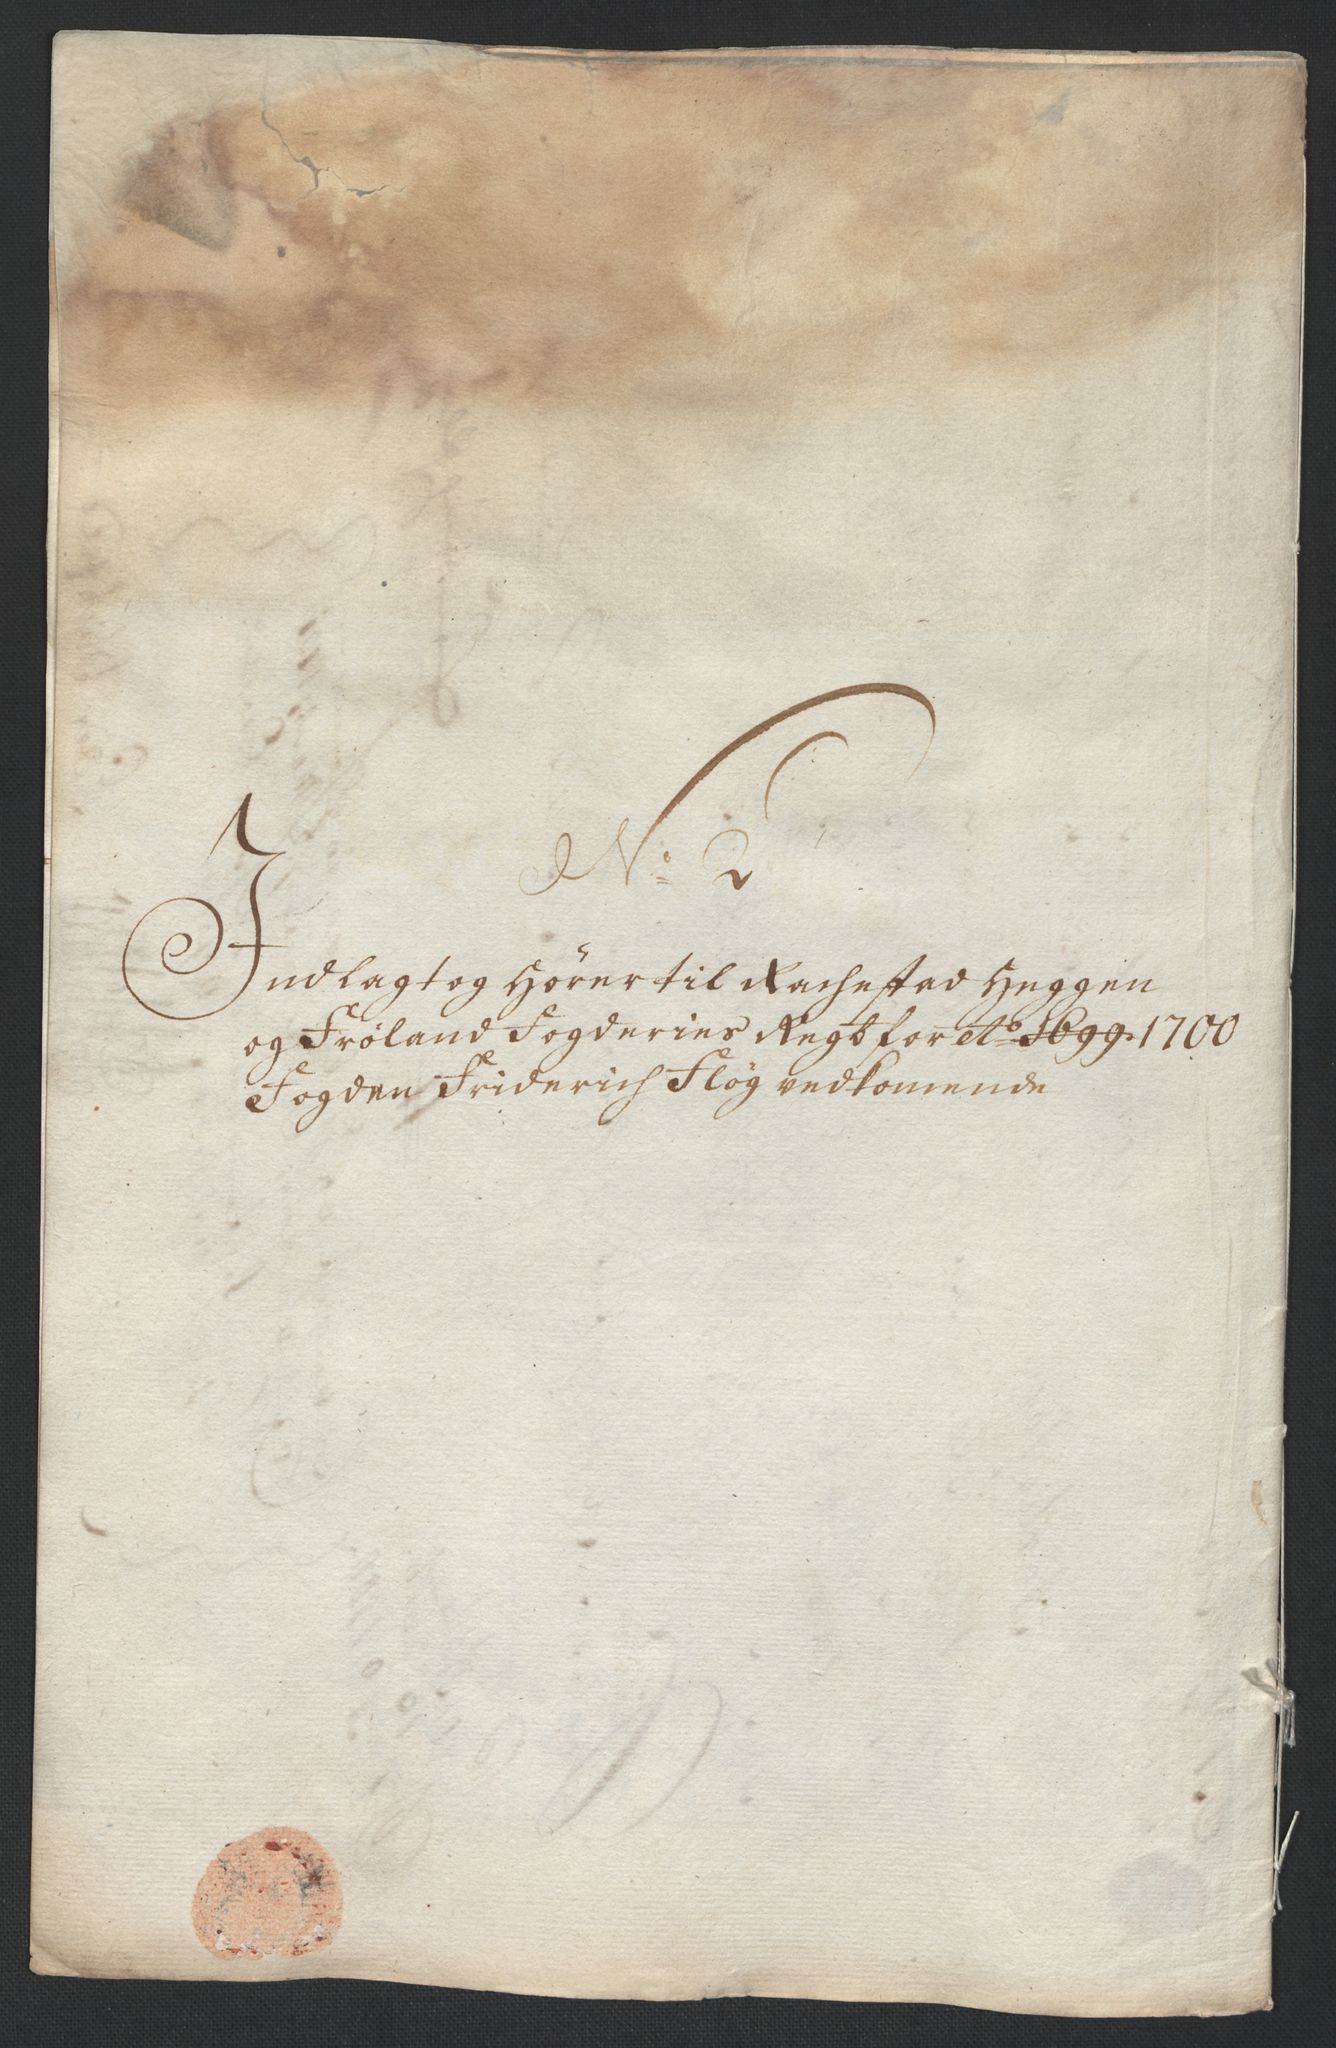 No: 2
Indlagt og Hörer til Rachestad Heggen
og Fröland Fogderies Regb for Ao 1699. 1700
Fogden Friderich Flög vedkomende